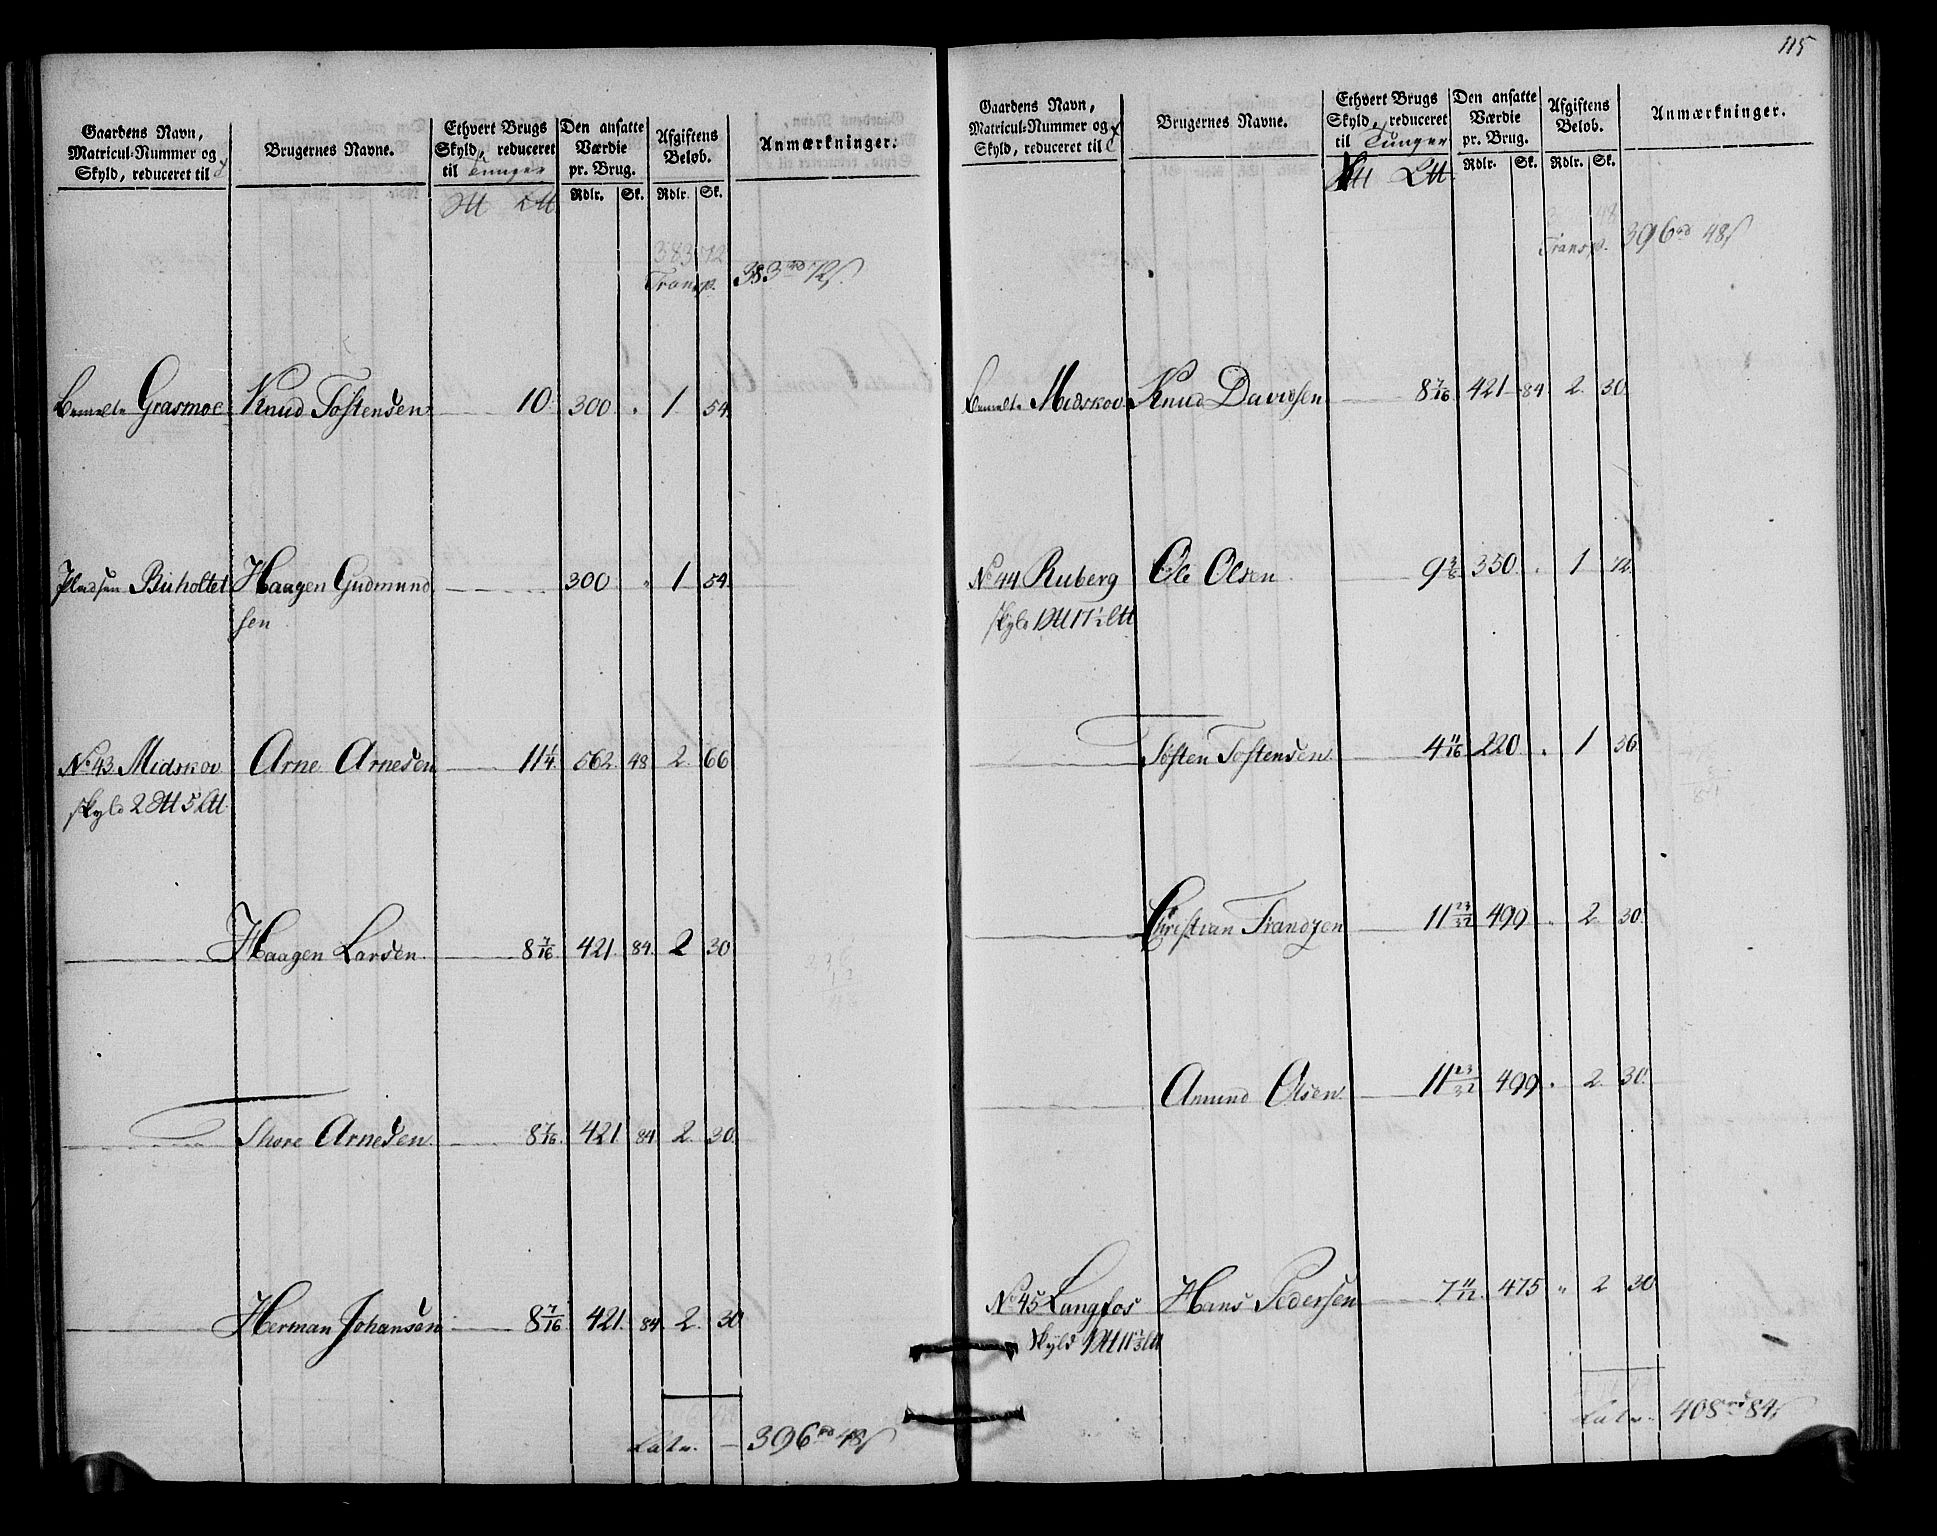 Gaardens Navn,
Matricul-Nummer og
Skyld, reduceret til
Brugernes Navne.
Ethvert Brugs
Skyld, reduceret
til Tunger
Den ansatte
Værdie
pr. Brug.
Afgiftens
Beløb.
Anmærkninger.
Rdlr. Sk. Rdlr. Sk.
383 72
Transp. 383 rd 72 s.
Bemelte Grasmoe Knud Tostensen 10. 300 „ 1 54.
Pladsen Biuholtet Haagen Gudmund 300 „ 1 54.
sen
No 43 Midskov Arne Arnesen 11 1/4 562. 48 2. 66
skyld 2 5
Haagen Larsen 8 7/16 421. 84. 2 30
Thore Arnesen 8 7/16 421 84 2. 30.
Herman Johansen 8 7/16 421. 84. 2. 30
Latr. — 396 rd 48 s
115
Gaardens Navn,
Matricul-Nummer og
Skyld, reduceret til
Brugernes Navne.
Ethvert Brugs
Skyld, reduceret
til Tunger
Den ansatte
Værdie
pr. Brug.
Afgiftens
Beløb.
Anmærkninger.
Rdlr. Sk. Rdlr. Sk.
Transp. 396 rd 48 s
Bemelte Midskov Knud Davidsen 8 7/16 421 84 2. 30.
No 44 Ruberg Ole Olsen 9 3/8 350. „ 1 72.
skyld 1 17 1/2
Tosten Tostensen 4 11/16 220 „ 1 36.
Christian Frandzen 11 23/32 499 „ 2. 30.
Amund Olsen 11 23/32 499. „ 2. 30.
No 45 Langfos Hans Pedersen 7 11/12 475 „ 2 30
skyld 1 11 1/2
Latr. 408 rd 84 s